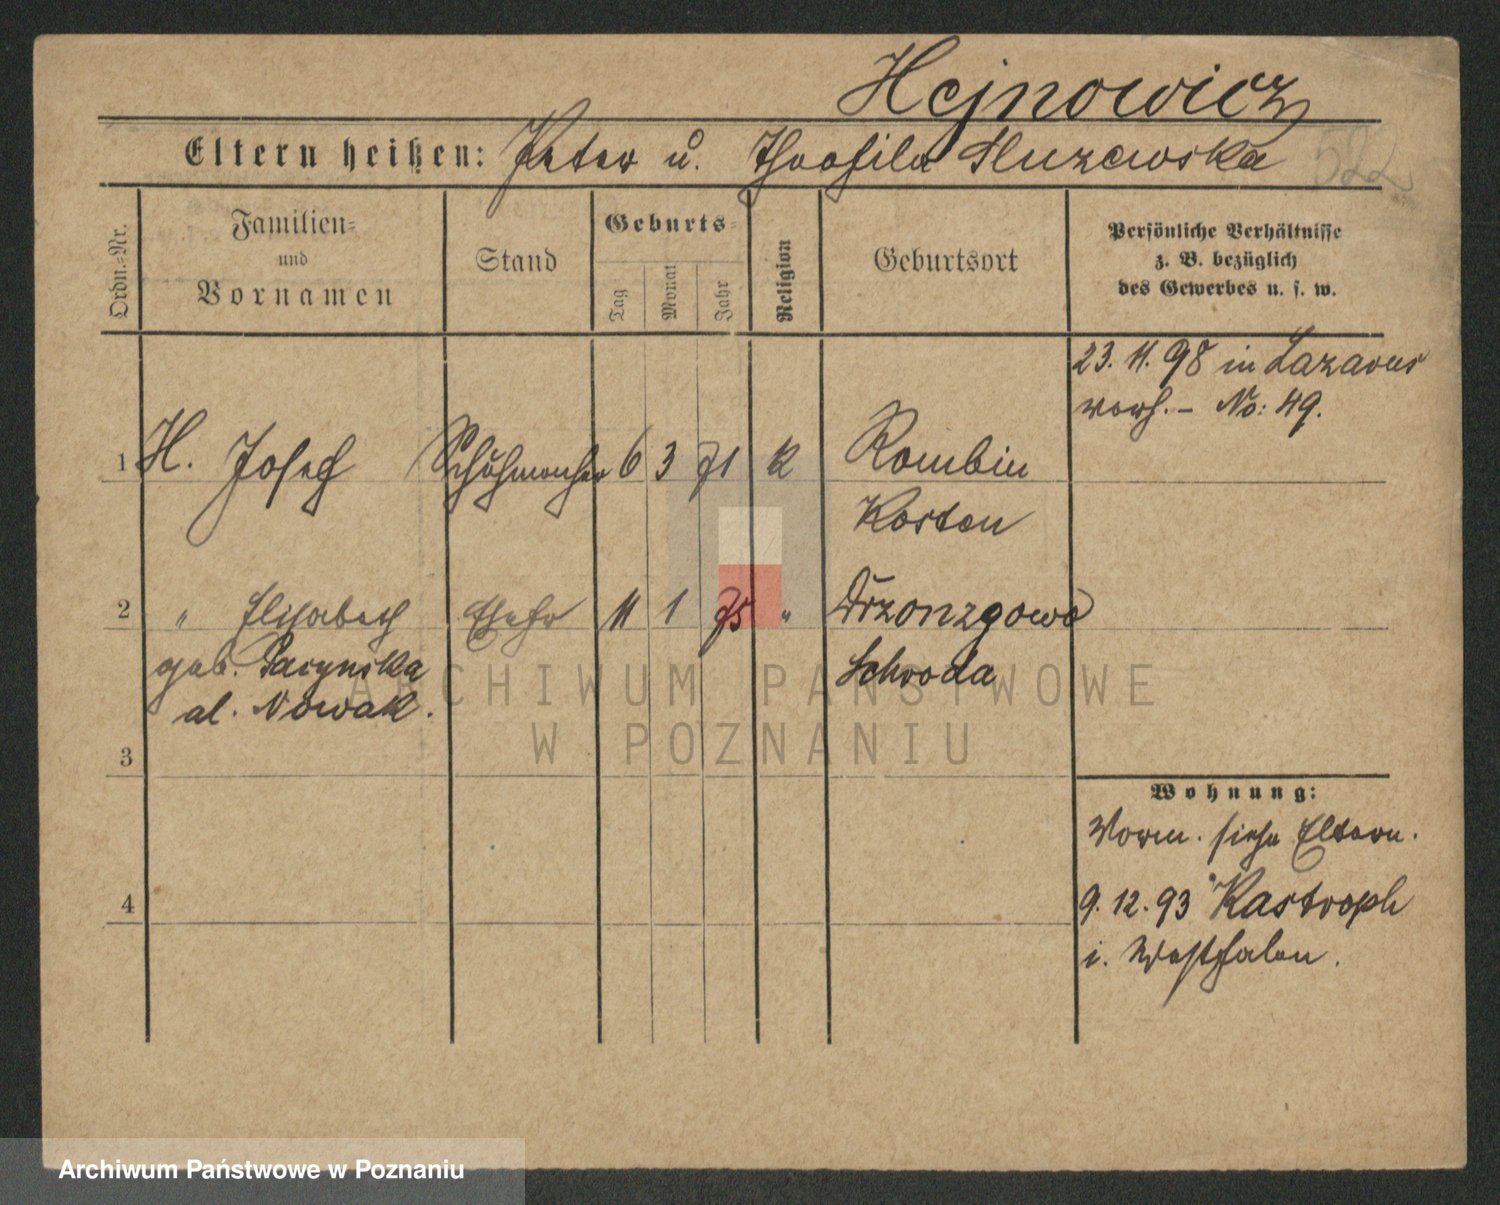 Hejnowicz
Eltern heißen: Peter u. Theofila Sluzewska
Ordn.-Nr.
Familien-
und
Vornamen
Stand
Geburts-
Tag
Monat
Jahr
Religion
Geburtsort
Persönliche Verhältnisse
z. B. bezüglich
des Gewerbes u. s. w.
23. 11. 98 in Lazarus
verh. - No: 49.
1 H. Josef Schuhmacher 6 3 71 k Rombin
Kosten
2 " Elisabeth Ehefr 11 1 75 " Drzonzgowo
geb. Pacynska Schroda
al. Nowak.
3
Wohnung:
Vorm. siehe Eltern.
4
9. 12. 93 Kastroph
i. Westfalen.
ARCHIWUM PAŃSTWOWE
W POZNANIU
Archiwum Państwowe w Poznaniu